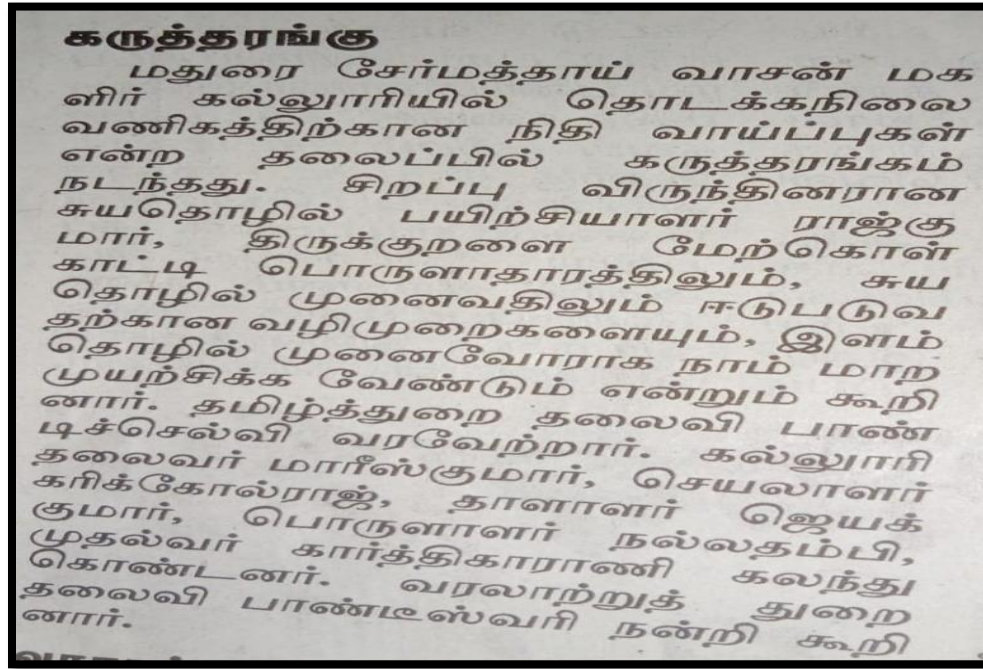 கருத்தரங்கு
மதுரை சேர்மத்தாய் வாசன் மக
ளிர் கல்லுாரியில் தொடக்கநிலை
வணிகத்திற்கான நிதி வாய்ப்புகள்
என்ற தலைப்பில் கருத்தரங்கம்
நடந்தது. சிறப்பு விருந்தினரான
சுயதொழில் பயிற்சியாளர் ராஜ்கு
மார், திருக்குறளை மேற்கொள்
காட்டி பொருளாதாரத்திலும், சுய
தொழில் முனைவதிலும் ஈடுபடுவ
தற்கான வழிமுறைகளையும், இளம்
தொழில் முனைவோராக நாம் மாற
முயற்சிக்க வேண்டும் என்றும் கூறி
னார். தமிழ்த்துறை தலைவி பாண்
டிச்செல்வி வரவேற்றார். கல்லுாரி
தலைவர் மாரீஸ்குமார், செயலாளர்
கரிக்கோல்ராஜ், தாளாளர் ஜெயக்
குமார், பொருளாளர் நல்லதம்பி,
முதல்வர் கார்த்திகாராணி கலந்து
கொண்டனர். வரலாற்றுத் துறை
தலைவி பாண்டீஸ்வரி நன்றி கூறி
னார்.